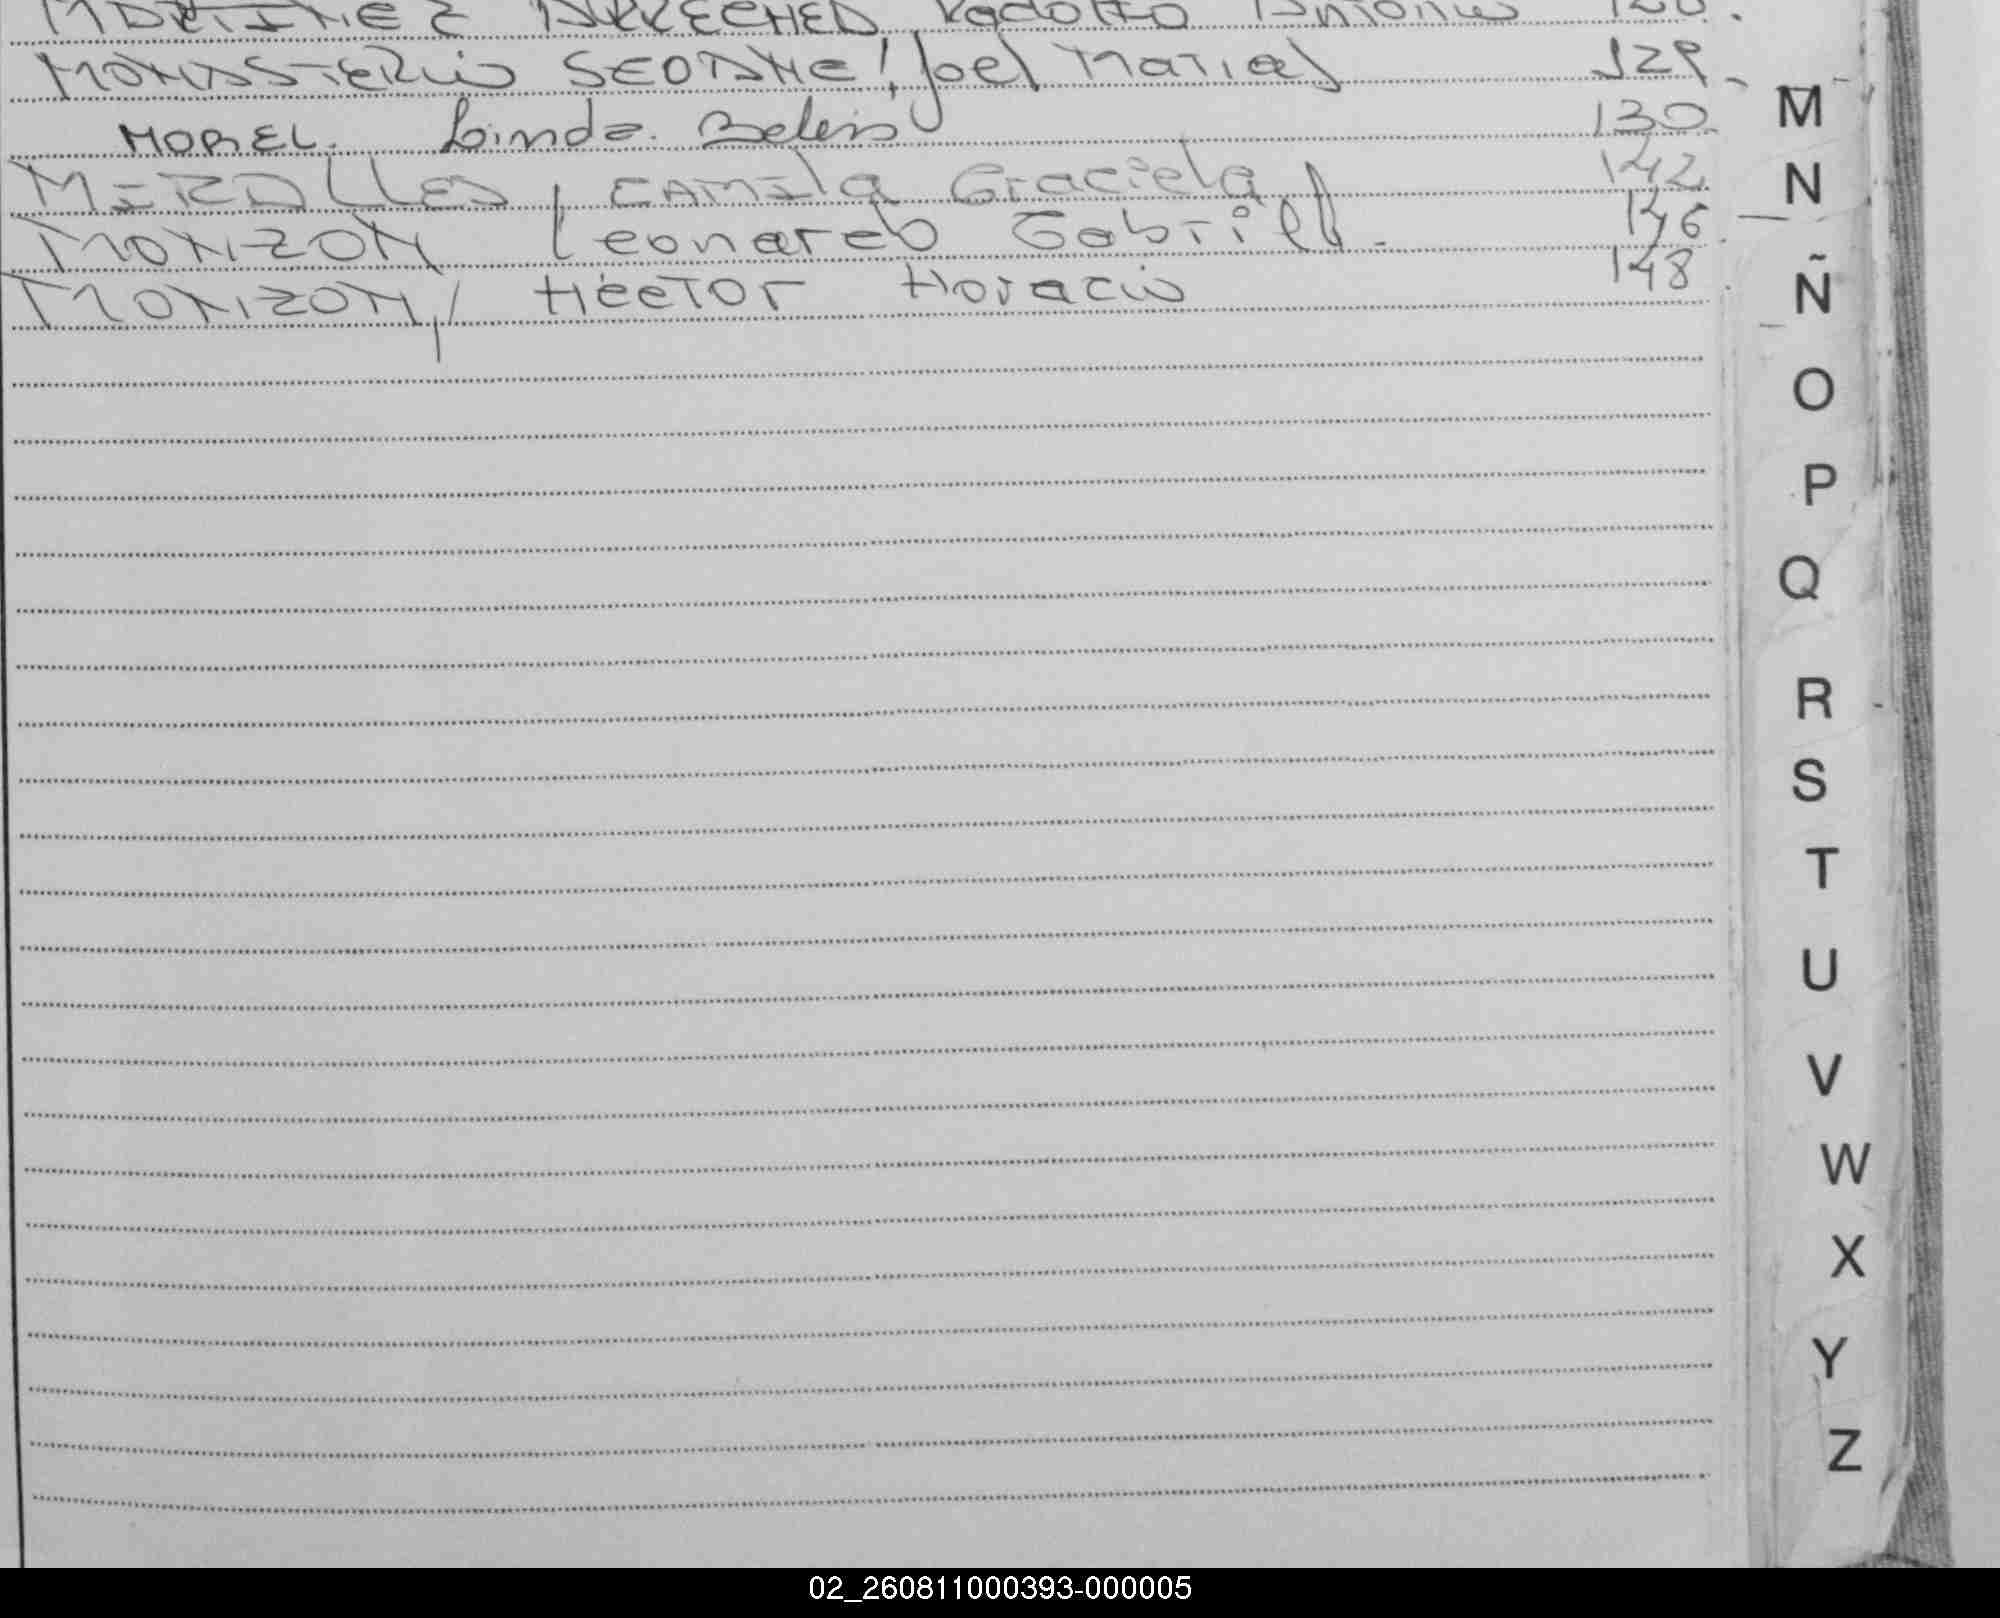 MARTINEZ ARRECHEA Rodolfo Antonio 128.
MONASTERIO SEOANE, Joel Matias 129
MOREL. Linda Belen 130
MIRALLES, CAMILA Graciela 142
MONZON Leonardo Gabriel 146
MONZON, HECTOR HORACIO 148
M
N
Ñ
O
P
Q
R
S
T
U
V
W
X
Y
Z
02_260811000393-000005